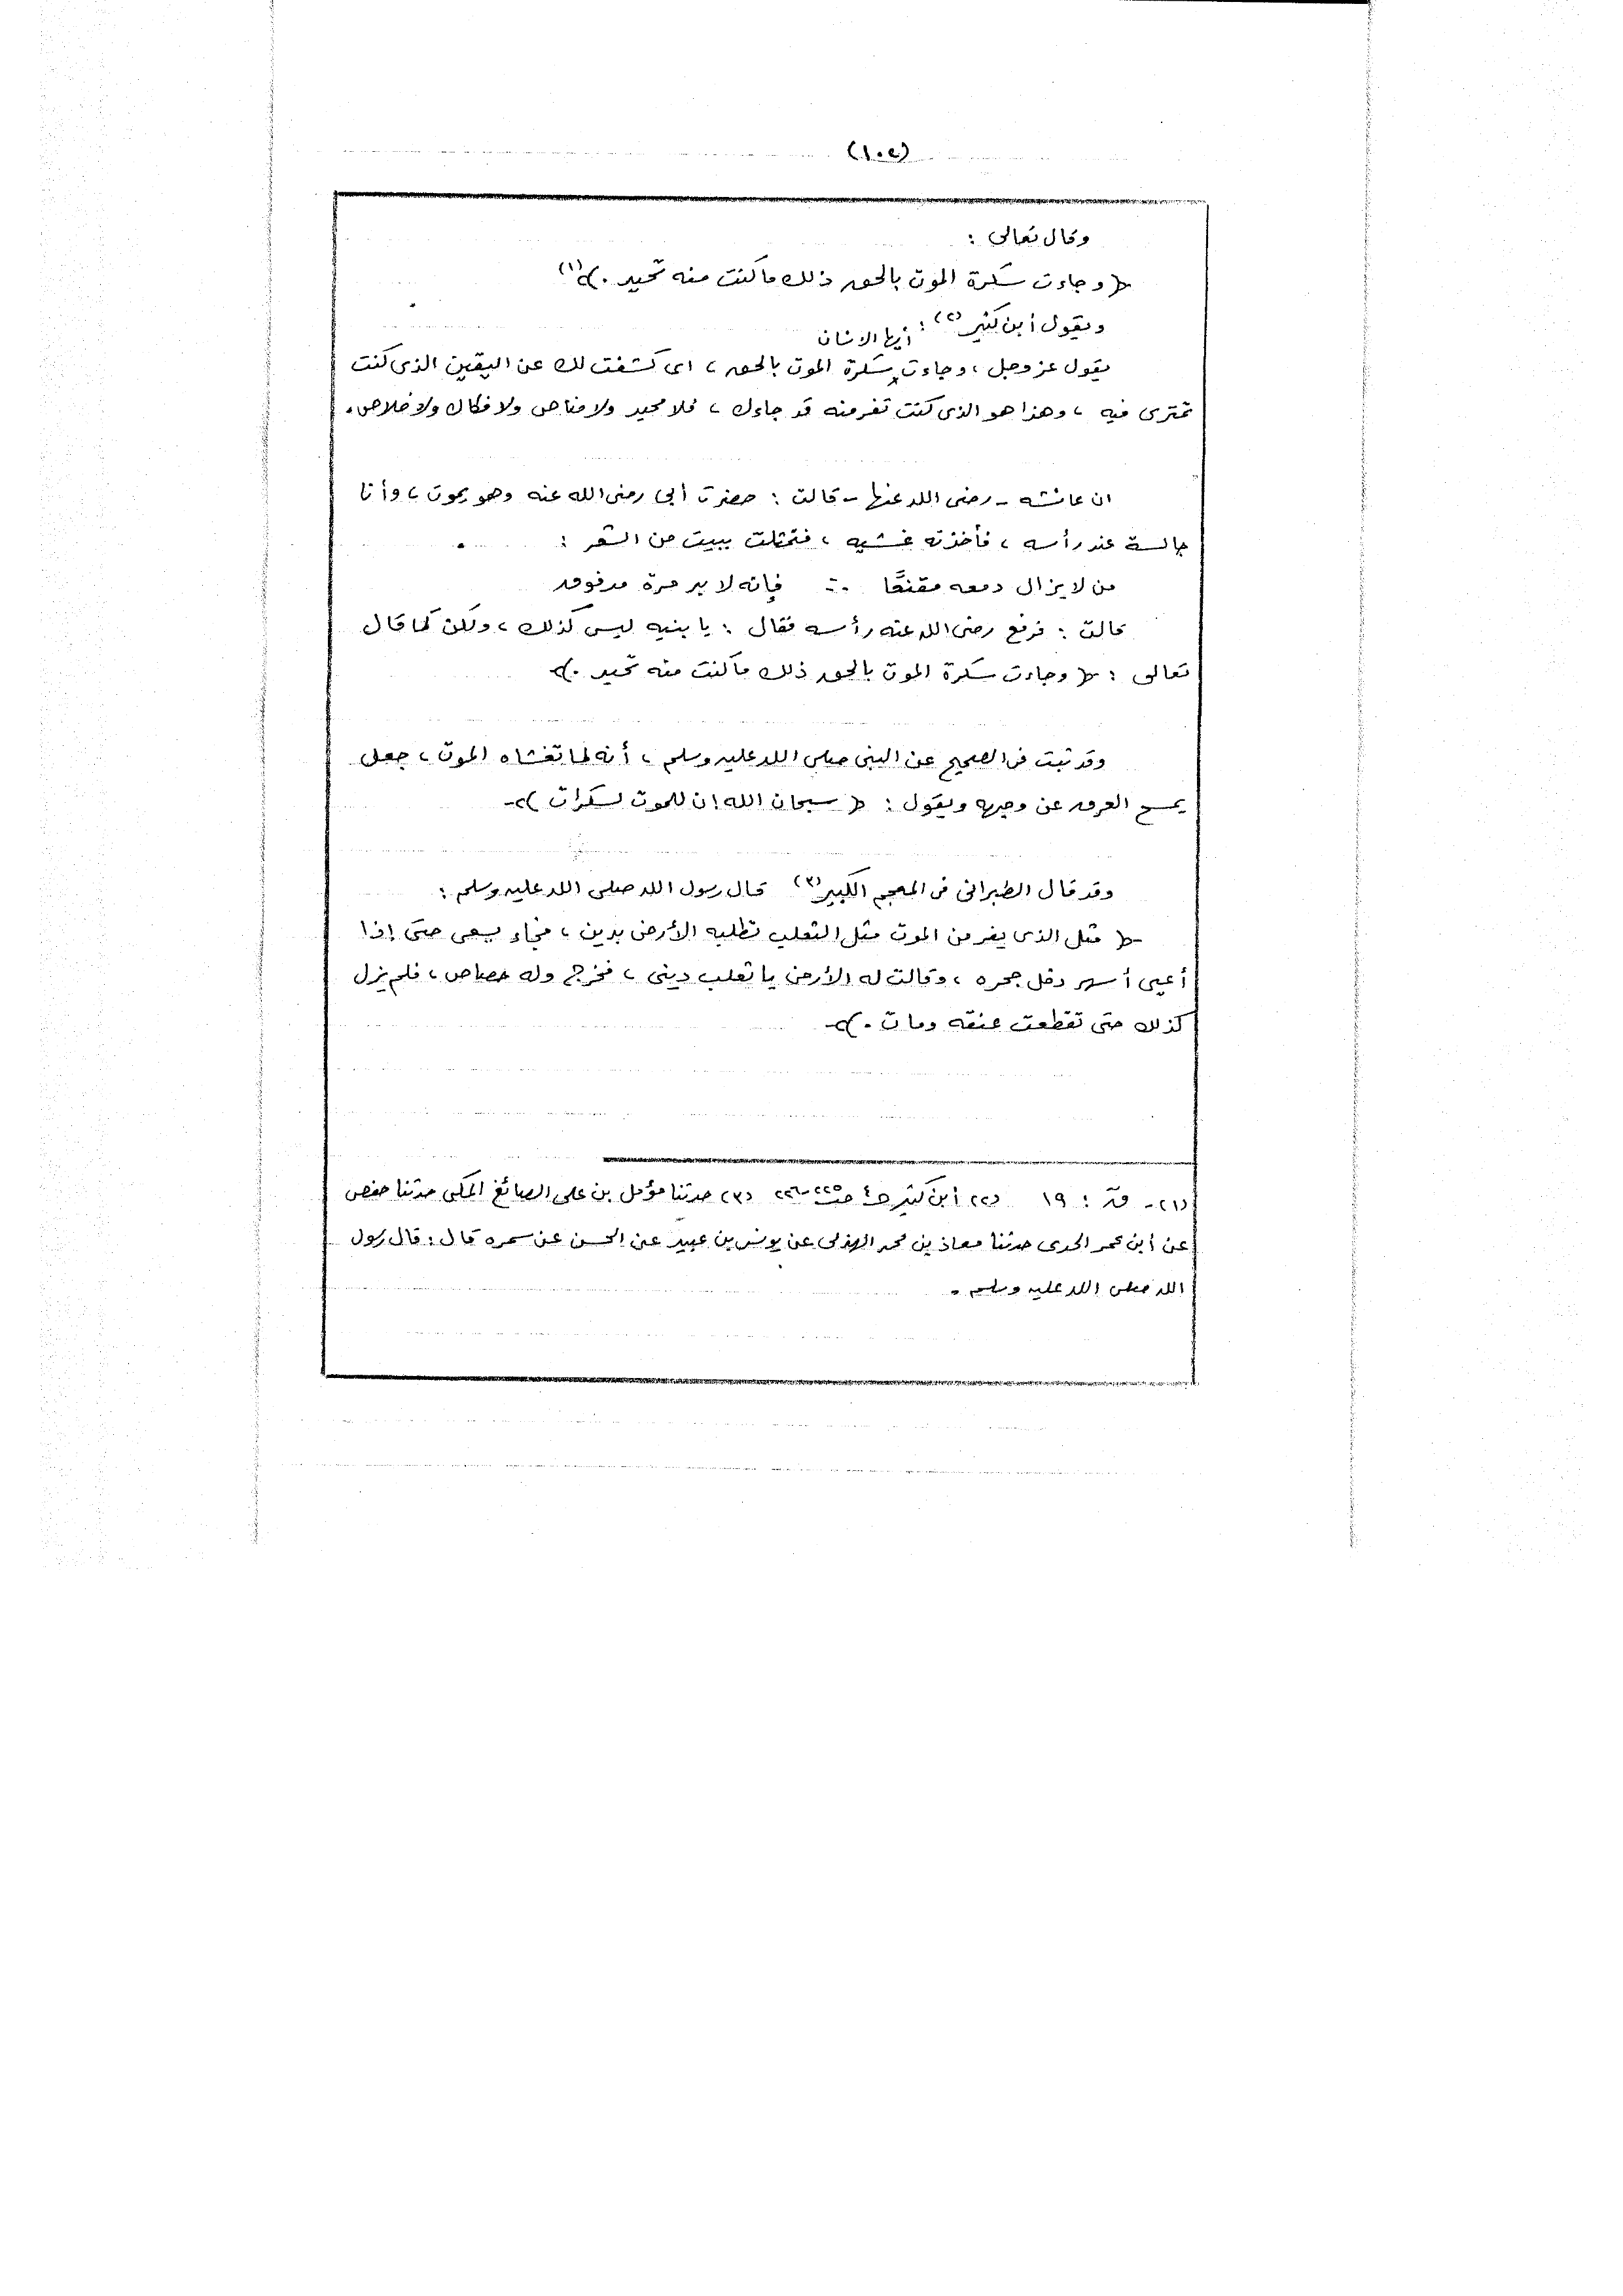 (١٠٢)
وقال تعالى :
« وجاءت سكرة الموت بالحق ذلك ما كنت منه تحيد . » (١)
ويقول أبن كثير (٢) :
أيها الانسان
يقول عز وجل ، وجاءت سكرة الموت بالحق ، اى كشفت لك عن اليقين الذى كنت
تمترى فيه ، وهذا هو الذى كنت تفر منه قد جاءك ، فلا محيد ولا مناص ولا فكاك ولا خلاص .
ان عائشه - رضى الله عنها - قالت : حضرت أبى رضى الله عنه وهو يموت ، وأنا
جالسة عند رأسه ، فأخذته غشيه ، فتمثلت ببيت من الشعر :
من لا يزال دمعه مقنعًا ∴ فإنه لا بد مرة مدفوق
قالت : فرفع رضى الله عنه رأسه فقال : يا بنيه ليس كذلك ، ولكن كما قال
تعالى : « وجاءت سكرة الموت بالحق ذلك ما كنت منه تحيد . »
وقد ثبت فى الصحيح عن النبى صلى الله عليه وسلم ، أنه لما تغشاه الموت ، جعل
يمسح العرق عن وجهه ويقول : « سبحان الله إن للموت لسكرات »
وقد قال الطبرانى فى المعجم الكبير (٣) قال رسول الله صلى الله عليه وسلم :
« مثل الذى يفر من الموت مثل الثعلب تطلبه الأرض بدين ، فجاء يسعى حتى إذا
أعيى أسهر دخل جحره ، وقالت له الأرض يا ثعلب دينى ، فخرج وله حصاص ، فلم يزل
كذلك حتى تقطعت عنقه ومات . »
(١) - ق : ١٩ (٢) أبن كثير ح٤ ص ٢٢٥ - ٢٢٦ (٣) حدثنا مؤمل بن على الصائغ المكى حدثنا حفص
عن أبن عمر الحدى حدثنا معاذ بن محمد الهذلى عن يونس بن عبيد عن الحسن عن سمره قال : قال رسول
الله صلى الله عليه وسلم .